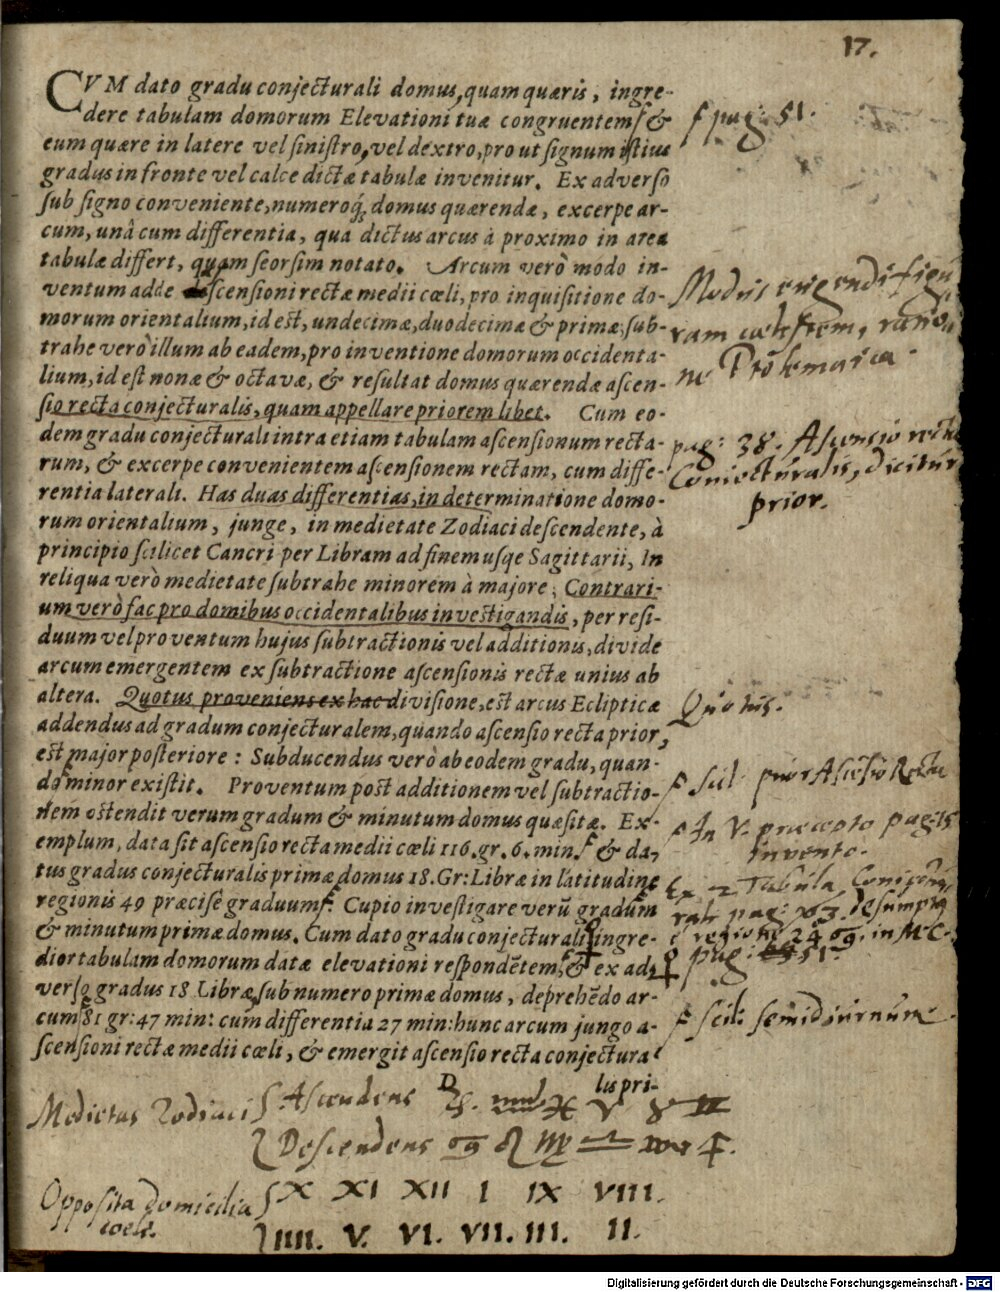 17.
CVM dato gradu conjecturali domus, quam quæris, ingre-
dere tabulam domorum Elevationi tuæ congruentem ſ &
eum quære in latere vel ſiniſtro, vel dextro, pro ut ſignum iſtius
gradus in fronte vel calce dictæ tabulæ invenitur. Ex adverſo
ſub ſigno conveniente, numeroq́; domus quærendæ, excerpe ar-
cum, unâ cum differentia, qua dictus arcus à proximo in area
tabulæ differt, quam ſeorſim notato. Arcum verò modo in-
ventum adde aſcenſioni rectæ medii cœli, pro inquiſitione do-
morum orientalium, id eſt, undecimæ, duodecimæ & primæ; ſub-
trahe verò illum ab eadem, pro inventione domorum occidenta-
lium, id eſt nonæ & octavæ, & reſultat domus quærendæ aſcen-
ſio recta conjecturalis, quam appellare priorem libet. Cum eo-
dem gradu conjecturali intra etiam tabulam aſcenſionum recta-
rum, & excerpe convenientem aſcenſionem rectam, cum diffe-
rentia laterali. Has duas differentias, in determinatione domo-
rum orientalium, junge, in medietate Zodiaci deſcendente, à
principio ſcilicet Cancri per Libram ad finem uſqe Sagittarii, In
reliqua verò medietate ſubtrahe minorem à majore; Contrari-
um verò fac pro domibus occidentalibus inveſtigandis, per reſi-
duum vel proventum hujus ſubtractionis vel additionis, divide
arcum emergentem ex ſubtractione aſcenſionis rectæ unius ab
altera. Quotus proveniens ex hac diviſione, eſt arcus Eclipticæ
addendus ad gradum conjecturalem, quando aſcenſio recta prior,
eſt major poſteriore: Subducendus verò ab eodem gradu, quan-
do minor exiſtit. Proventum poſt additionem vel ſubtractio-
nem oſtendit verum gradum & minutum domus quæſitæ. Ex-
emplum, data ſit aſcenſio recta medii cœli 116. gr. 6. min. ſ & da-
tus gradus conjecturalis primæ domus 18. Gr: Libræ in latitudine
regionis 49 præciſè graduum ſ. Cupio inveſtigare verũ gradum
& minutum primæ domus. Cum dato gradu conjecturali ingre-
dior tabulam domorum datæ elevationi reſpondẽtem, & ex ad-
verſo gradus 18 Libræ ſub numero primæ domus, deprehẽdo ar-
cum 81 gr: 47 min: cum differentia 27 min: hunc arcum jungo a-
ſcenſioni rectæ medii cœli, & emergit aſcenſio recta conjectura
lis pri-
ſ pag: 51.
Modus erigendi figu
ram cœlestem, ratio
ne Ptolemaica
pag: 38. Ascensio recta
Coniecturalis, dicitur
prior.
Quotus.
ſ scil: prior Ascensio Recta
ſ In V. præcepto pag: 15
invento.
Ex 2 Tabula, Coniectu
rali pag: 163. desumpta
è regione 24 ♋. in M.C.
pag: 51
ſ scil: semidiurnum
Medietas Zodiaci Ascendens ♑. ♒ ♓ ♈ ♉ ♊
Descendens ♋ ♌ ♍ ♎ ♏ ♐.
Opposita domicilia X XI XII I IX VIII.
coeli. IIII. V. VI. VII. III. II.
Digitalisierung gefördert durch die Deutsche Forschungsgemeinschaft - DFG